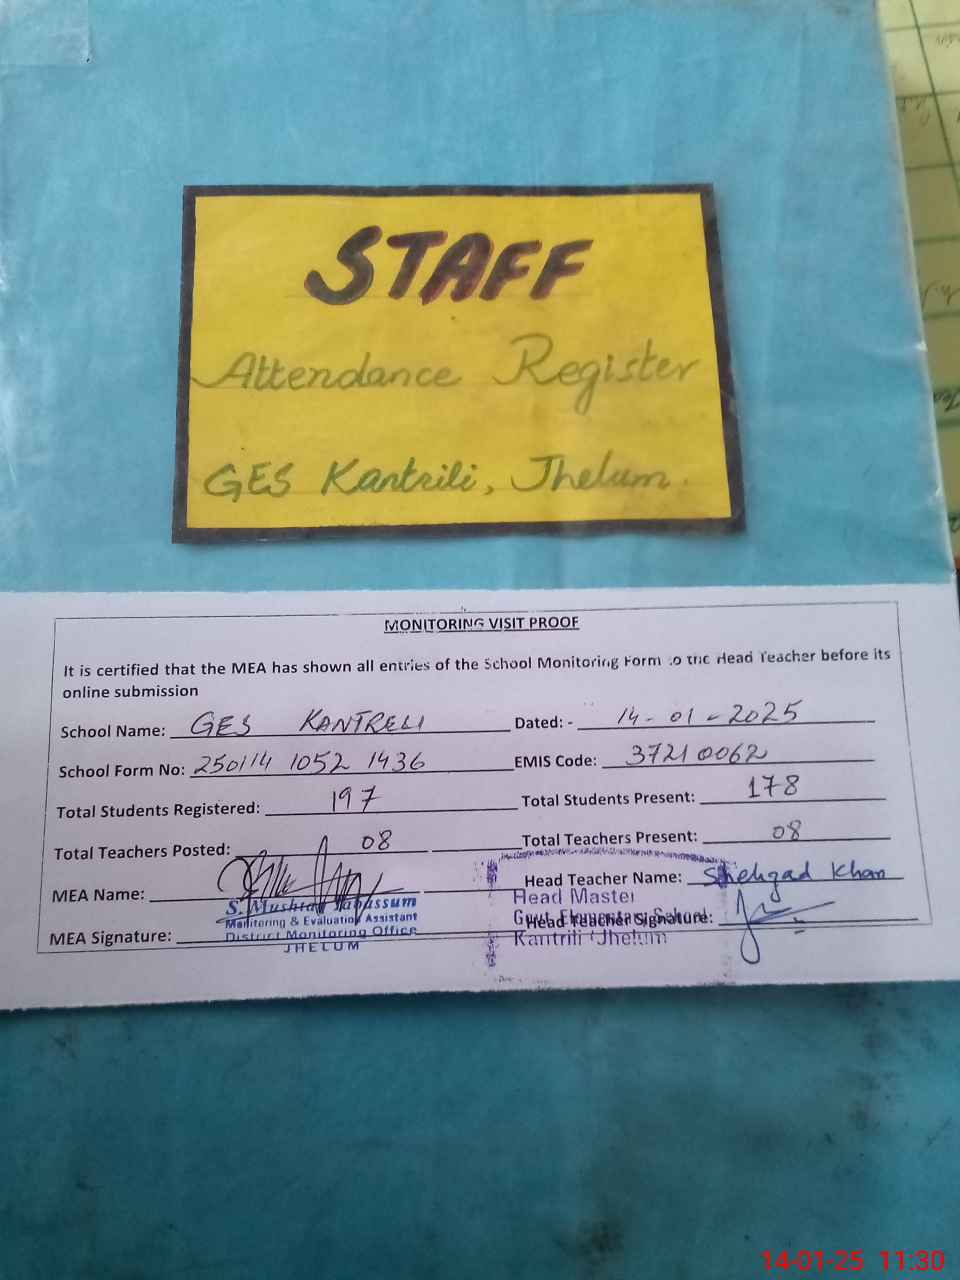 STAFF
Attendance Register
GES Kantrili, Jhelum.
MONITORING VISIT PROOF
It is certified that the MEA has shown all entries of the School Monitoring Form to the Head Teacher before its
online submission
School Name: GES KANTRELI Dated: - 14-01-2025
School Form No: 250114 1052 1436 EMIS Code: 37210062
Total Students Registered: 197 Total Students Present: 178
Total Teachers Posted: 08 Total Teachers Present: 08
MEA Name: Head Teacher Name: Shehzad Khan
S. Mushtaq Tabassum
Monitoring & Evaluation Assistant
District Monitoring Office
JHELUM
Head Master
Govt. Elementary School
Kantrili (Jhelum)
MEA Signature: Head Teacher Signature:
14-01-25 11:30